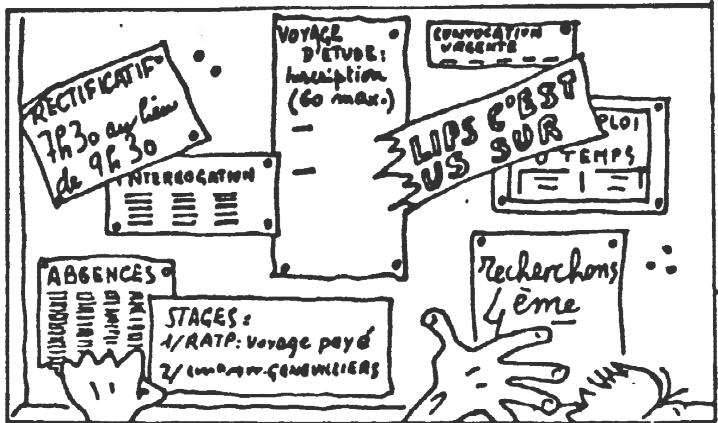 RECTIFICATIF
7h30 au lieu
de 9h30
VOYAGE
D'ÉTUDE:
Inscription
(60 max.)
CONVOCATION
URGENTE
LIPS C'EST
US SUR
PLOI
U TEMPS
INTERROGATION
ABSENCES
STAGES:
1/RATP: voyage payé
2/ GENEVILLIERS
recherchons
4ème